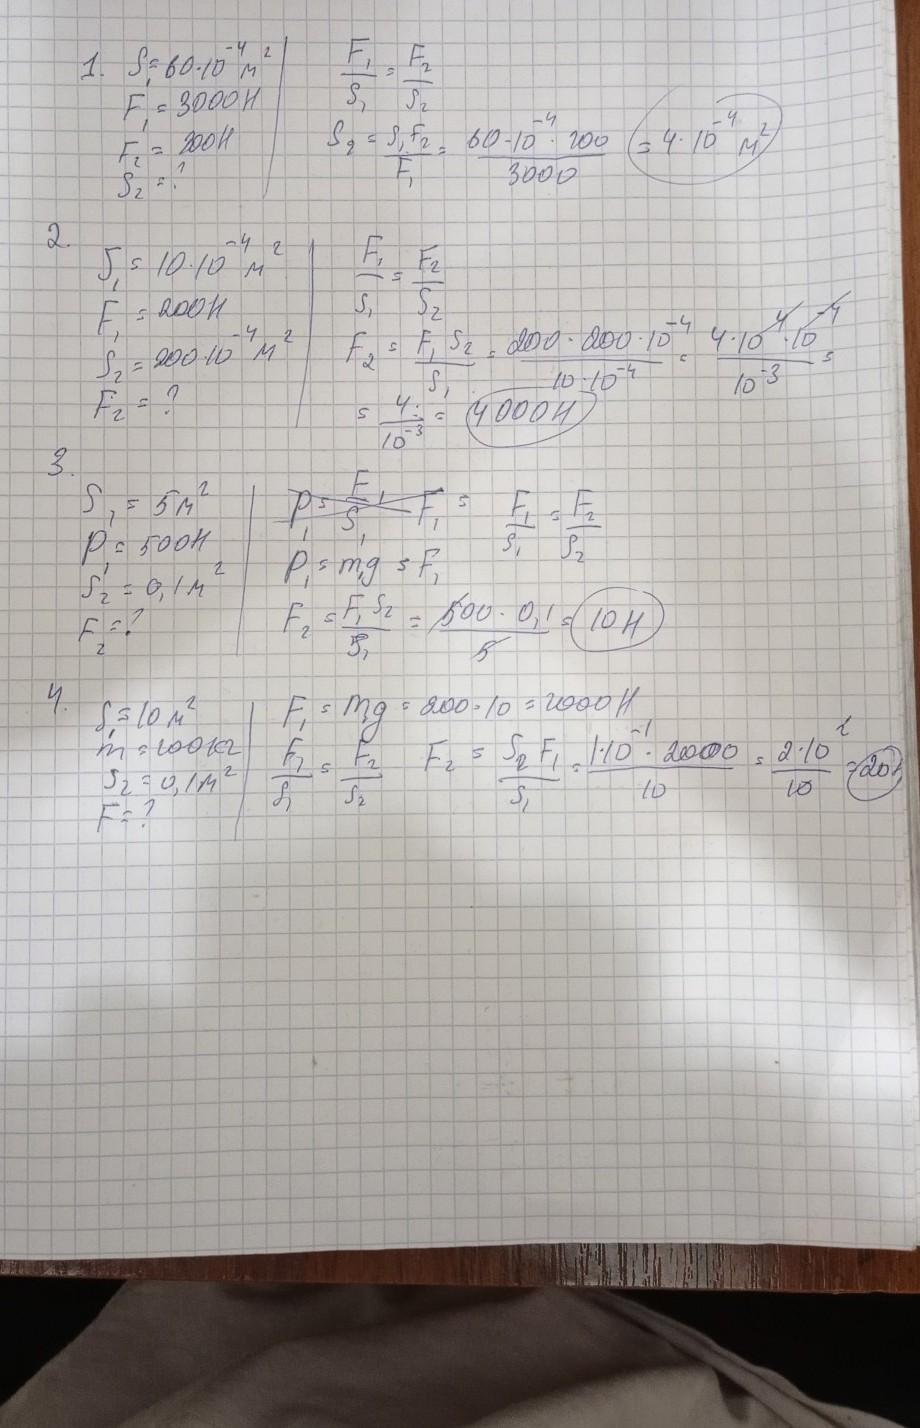 1. S₁ = 60·10⁻⁴ м²
F₁ = 3000 Н
F₂ = 200 Н
S₂ = ?
F₁/S₁ = F₂/S₂
S₂ = S₁F₂/F₁ = 60·10⁻⁴·200/3000 = 4·10⁻⁴ м²
2.
S₁ = 10·10⁻⁴ м²
F₁ = 200 Н
S₂ = 200·10⁻⁴ м²
F₂ = ?
F₁/S₁ = F₂/S₂
F₂ = F₁S₂/S₁ = 200·200·10⁻⁴/10·10⁻⁴ = 4·10⁴·10⁻⁴/10⁻³ =
= 4/10⁻³ = 4000 Н
3.
S₁ = 5 м²
P₁ = 500 Н
S₂ = 0,1 м²
F₂ = ?
F₁ = F₁/S₁ = F₂/S₂
P₁ = m₁g = F₁
F₂ = F₁S₂/S₁ = 500·0,1/5 = 10 Н
4.
S₁ = 10 м²
m = 200 кг
S₂ = 0,1 м²
F = ?
F₁ = mg = 200·10 = 2000 Н
F₁/S₁ = F₂/S₂ F₂ = S₂F₁/S₁ = 1·10⁻¹·2000/10 = 2·10²/10 = 20 Н